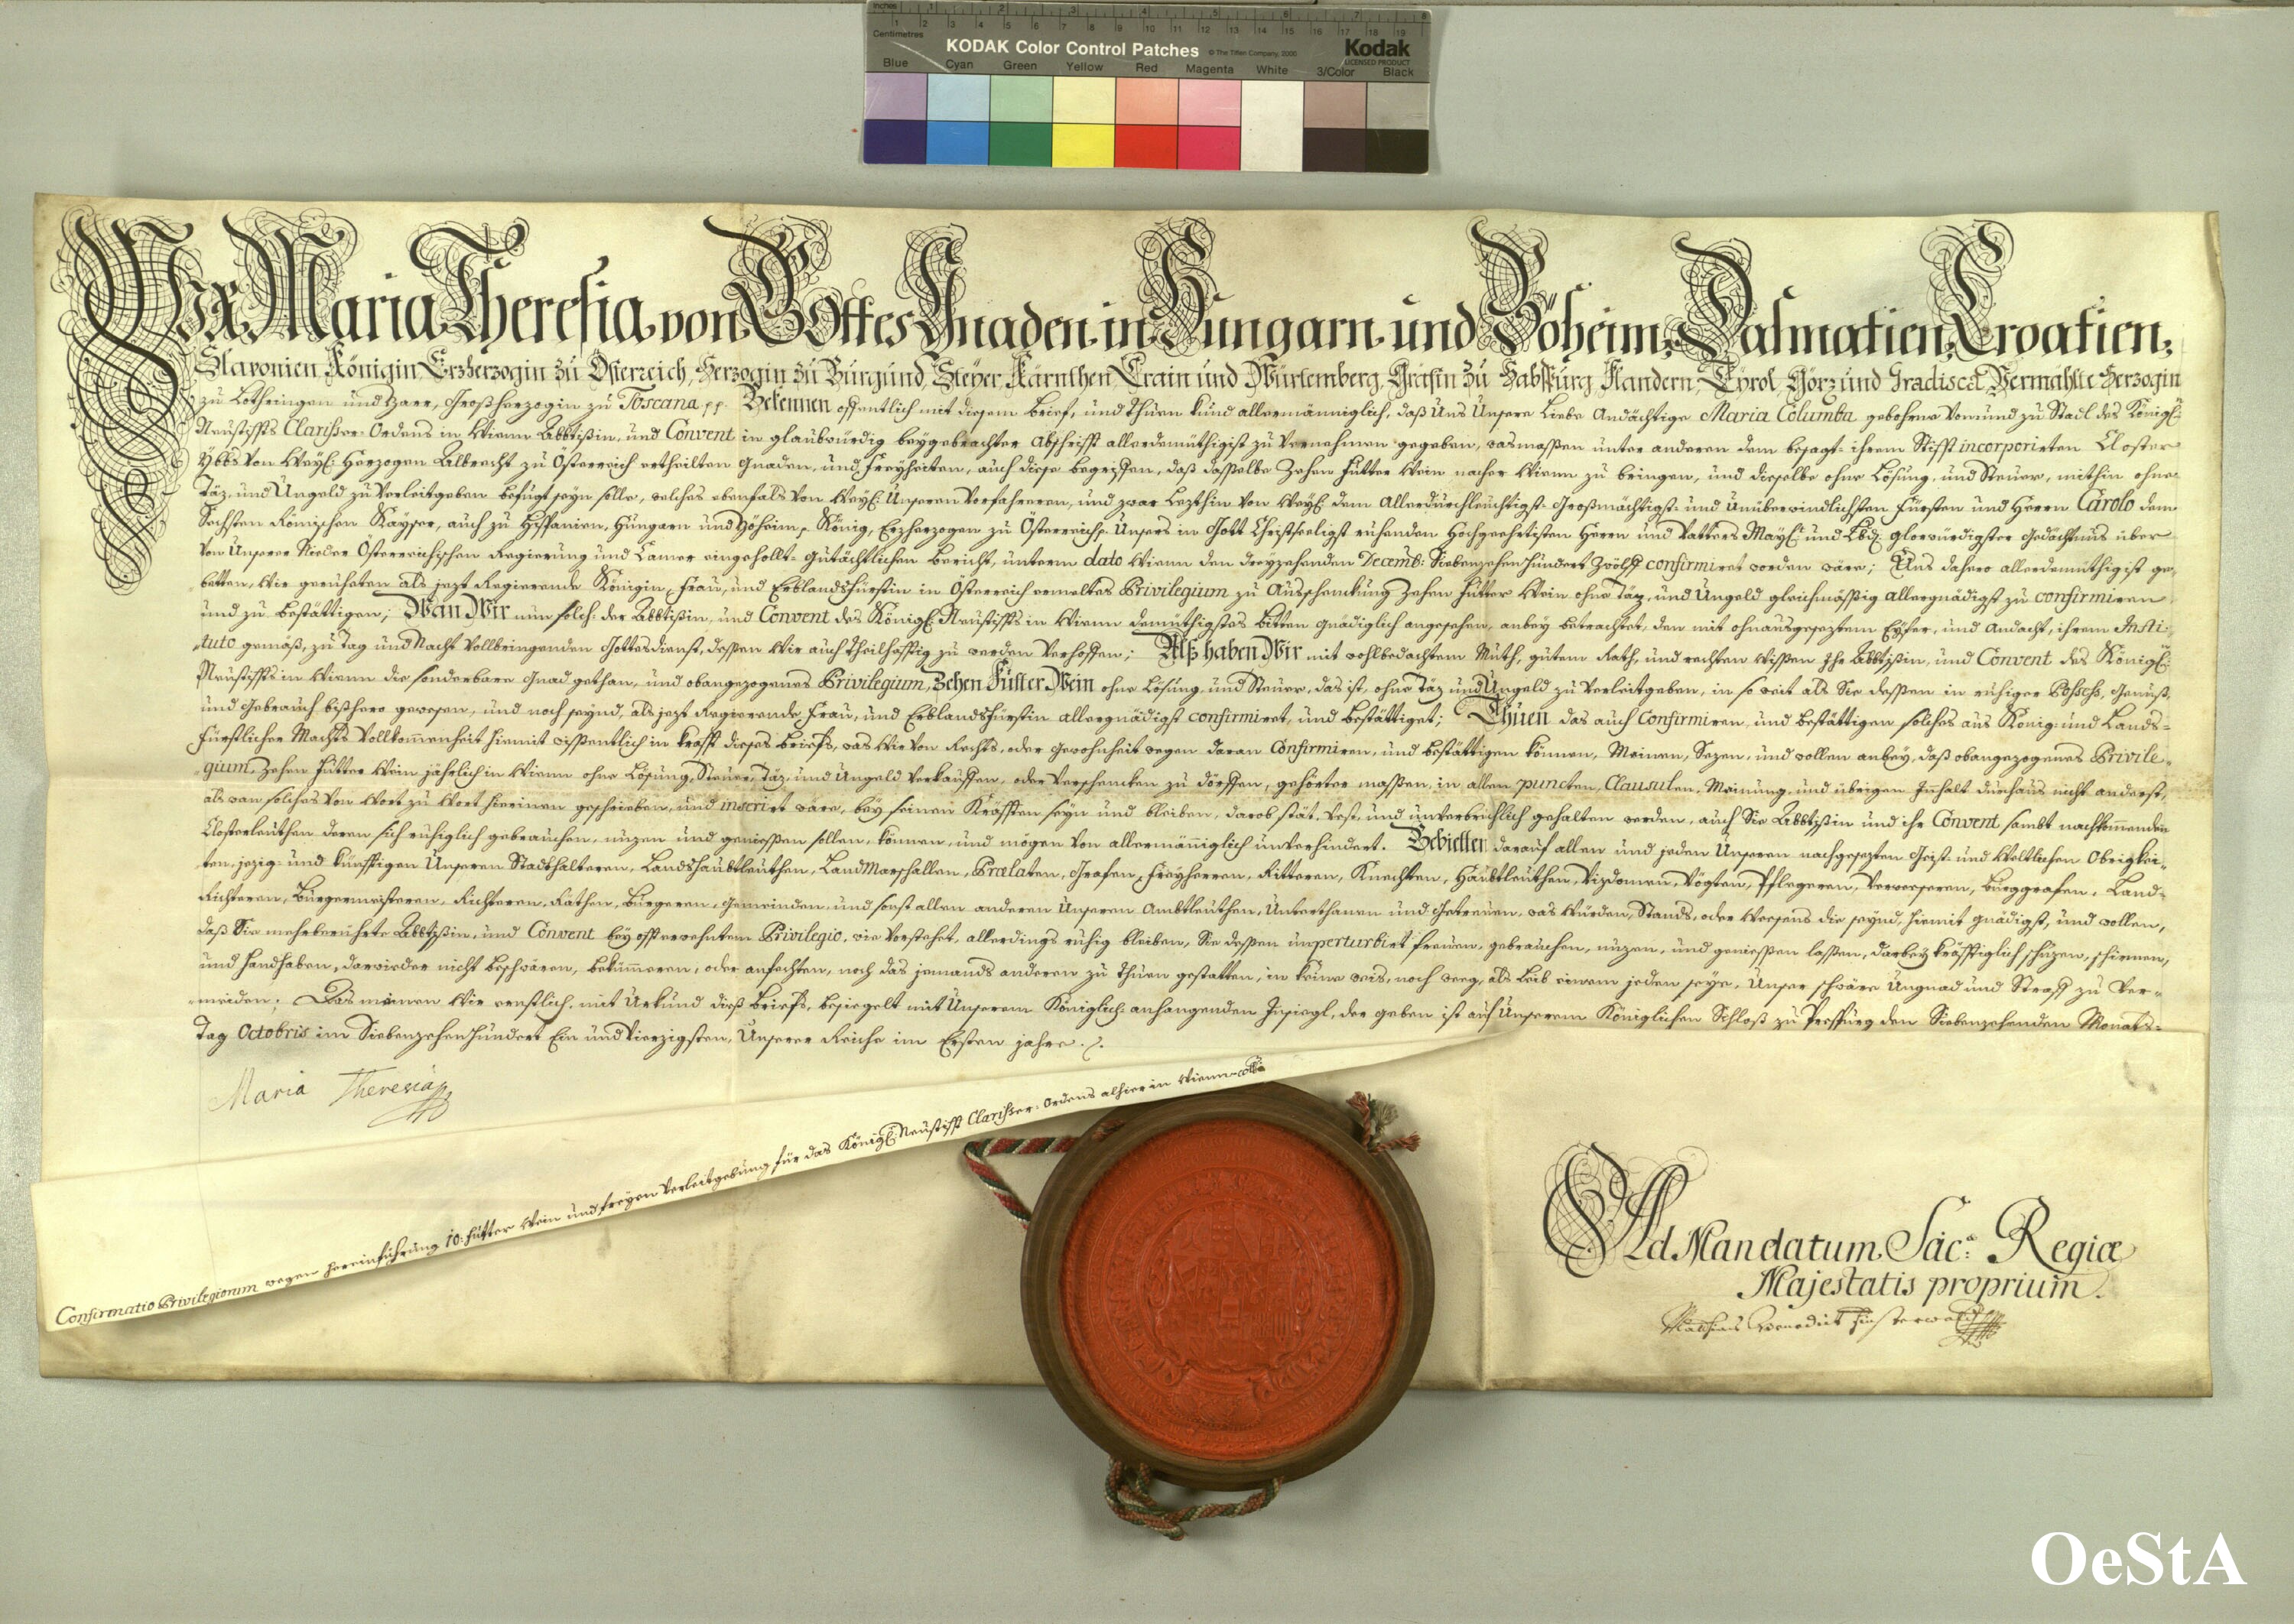 Inches 1 2 3 4 5 6 7 8
Centimetres 1 2 3 4 5 6 7 8 9 10 11 12 13 14 15 16 17 18 19
KODAK Color Control Patches © The Tiffen Company, 2000 Kodak
LICENSED PRODUCT
Blue Cyan Green Yellow Red Magenta White 3/Color Black
Wir Maria Theresia von Gottes Gnaden in Hungarn und Böheim, Dalmatien, Croatien,
Slavonien Königin, Erzherzogin zu Österreich, Herzogin zu Burgund, Steyer, Kärnthen, Crain und Würtemberg, Gräfin zu Habspurg, Flandern, Tyrol, Görz und Gradisca, Vermählte Herzogin
zu Lothringen und Baar, Großherzogin zu Toscana pp. Bekennen offentlich mit diesem brief, und thuen kund allermänniglich, daß Uns Unsere Liebe Andächtige Maria Columba gebohrne von und zu Stadl des Königl:
Neustiffts Clarißer-Ordens in Wienn Abbtißin, und Convent in glaubwürdig beygebrachter Abschrifft allerdemüthigist zu vernehmen gegeben, wasmaßen unter anderen dem besagt-ihrem Stifft incorporirten Closter
Ybbs von Weyl: Herzogen Albrecht zu Österreich ertheilten Gnaden, und Freyheiten, auch diese begriffen, daß dasselbe Zehen Fuder Wein nacher Wienn zu bringen, und dieselbe ohne Losung, und Steuer, mithin ohne
Täz, und Ungeld zu verleitgeben befugt seyn solle, welches ebenfals von Weyl: Unseren Vorfahreren, und zwar Lezthin von Weyl: dem Allerdurchleuchtigst-Großmächtigst-und Unüberwindlichsten Fürsten und Herrn Carolo dem
Sechsten Römischen Kayser, auch zu Hispanien, Hungarn und Böheim, König, Erzherzogen zu Österreich, Unsers in Gott Christseeligst ruhenden Hochgeehrtisten Herrn und Vatters May: und Lbd: glorwürdigster Gedächtnus über
von Unserer Nieder Österreichischen Regierung und Camer eingehollt-gutächtlichen Bericht, unterm dato Wienn den dreyzehenden Decemb: Siebenzehenhundert Zwölff confirmiret worden wäre; Uns dahero allerdemüthigist ge-
betten, Wir geruheten als jezt Regierende Königin, Frau, und Erblandsfürstin in Österreich ermeltes Privilegium zu Ausschenkung Zehen Fuder Wein ohne Täz, und Ungeld gleichmäßig allergnädigst zu confirmiren
und zu bestättigen; Wan Wir nun solch-der Abbtißin, und Convent des Königl: Neustiffts in Wienn demüthigstes bitten gnädiglich angesehen, anbey betrachtet, den mit ohnausgeseztem Eyfer, und Andacht, ihrem Insti-
tuto gemäß, zu Tag und Nacht vollbringenden Gottesdienst, dessen Wir auch theilhafftig zu werden verhoffen; Alß haben Wir mit wohlbedachtem Muth, gutem Rath, und rechten wißen Ihr Abbtißin, und Convent des Königl:
Neustiffts in Wienn die sonderbare Gnad gethan, und obangezogenes Privilegium, Zehen Fuder Wein ohne Losung und Steuer, das ist, ohne Täz und Ungeld zu verleitgeben, in so weit als Sie dessen in ruhiger Posess, Genuß,
und Gebrauch bißhero gewesen, und noch seynd, als jezt Regierende Frau, und Erblandsfürstin allergnädigst confirmiret, und bestättiget; Thuen das auch confirmiren, und bestättigen solches aus König-und Lands-
fürstlicher Machts Vollkommenheit hiemit wissentlich in krafft dieses briefs, was Wir von Rechts, oder Gewohnheit wegen daran confirmiren, und bestättigen können, Meinen, Sezen, und wollen anbey, daß obangezogenes Privile-
gium, Zehen Fuder Wein jährlich in Wienn ohne Losung, Steuer, Täz, und Ungeld verkauffen, oder verschencken zu dörffen, gehörter maßen, in allen puncten, Clausulen, Meinung und übrigen Inhalt durchaus nicht anderst,
als wan solches von Wort zu Wort hierinen geschrieben, und inseriret wäre, bey seinen Kräfften seyn und bleiben, darob stät, vest, und unverbrüchlich gehalten werden, auch Sie Abbtißin und ihr Convent sambt nachkommenden
Closterleuthen deren sich ruhiglich gebrauchen, nuzen und genießen sollen, können, und mögen von allermäniglich unverhindert. Gebietten darauf allen und jeden Unseren nachgesezten Geist-und Weltlichen Obrigkei-
ten, jezig-und künfftigen Unseren Stadthalteren, Landshaubtleuthen, LandMarschallen, Prælaten, Grafen, Freyherren, Ritteren, Knechten, Haubtleuthen, Vizdomen, Vögten, Pflegeren, Verweseren, Burggrafen, Land-
Richteren, Burgermeisteren, Richteren, Räthen, Burgeren, Gemeinden, und sonst allen anderen Unseren Ambtleuthen, Unterthanen und Getreuen, was Würden, Stands, oder Weesens die seynd, hiemit gnädigst, und wollen,
daß Sie mehrberührte Abbtißin, und Convent bey offterwehntem Privilegio, wie vorstehet, allerdings ruhig bleiben, Sie dessen unperturbirt freuen, gebrauchen, nuzen, und genießen laßen, darbey kräfftiglich schuzen, schirmen,
und handhaben, darwieder nicht beschwären, bekümmeren, oder anfechten, noch das jemands anderen zu thuen gestatten, in keine weis, noch weeg, als lieb einem jeden seye, Unser schwäre Ungnad und Straff zu ver-
meiden; Das meinen Wir ernstlich, mit Urkund dieß briefs, besiegelt mit Unserem Königlich-anhangenden Insiegl, der geben ist auf Unserem Königlichen Schloß zu Preßburg den Siebenzehenden Monats-
Tag Octobris im Siebenzehenhundert Ein und Vierzigsten, Unserer Reiche im Ersten jahre.
Maria Theresia
Confirmatio Privilegiorum wegen hereinführung 10: Fuder Wein und freyen Verleitgebung für das Königl: Neustifft Clarißer-Ordens alhier in Wienn
Ad Mandatum Sac:ae Regiæ
Majestatis proprium.